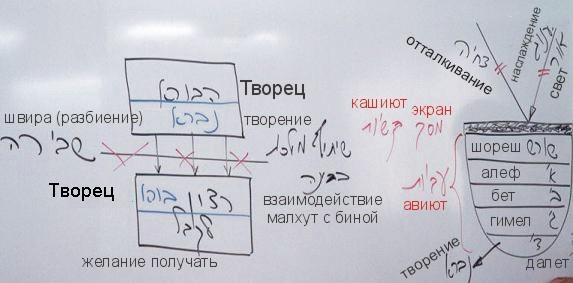 הבורא
Творец
נברא
творение
швира (разбиение)
שבירה
שיתוף מלכות
בבינה
Творец
רצון
לקבל
взаимодействие
малхут с биной
желание получать
отталкивание
דחיה
наслаждение
свет
кашиют экран
מסך קשיות
шореш שורש
алеф א'
бет ב
гимел ג
далет ד'
עביות
авиют
творение
נברא